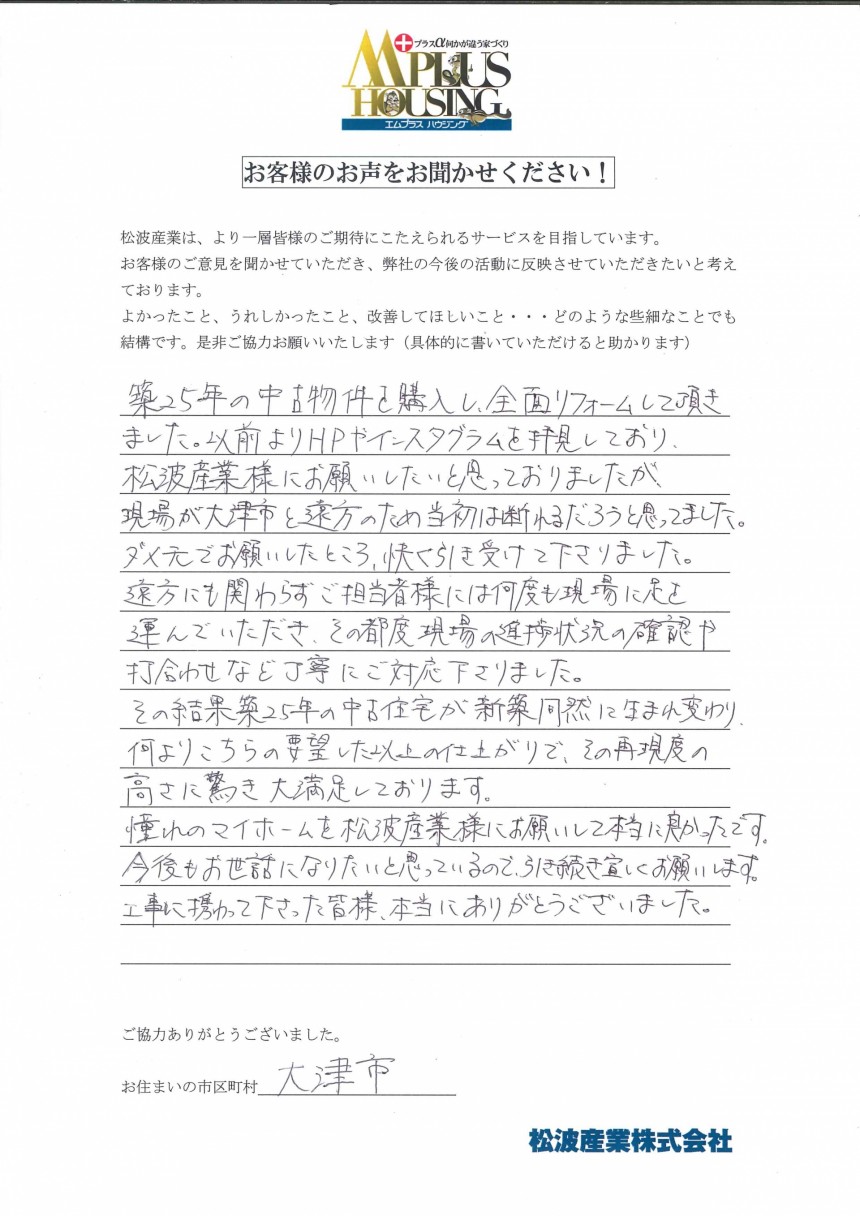 プラスα何かが違う家づくり
M PLUS
HOUSING
エムプラス ハウジング
お客様のお声をお聞かせください！
松波産業は、より一層皆様のご期待にこたえられるサービスを目指しています。
お客様のご意見を聞かせていただき、弊社の今後の活動に反映させていただきたいと考え
ております。
よかったこと、うれしかったこと、改善してほしいこと・・・どのような些細なことでも
結構です。是非ご協力お願いいたします（具体的に書いていただけると助かります）
築25年の中古物件を購入し、全面リフォームして頂き
ました。以前よりHPやインスタグラムを拝見しており、
松波産業様にお願いしたいと思っておりましたが、
現場が大津市と遠方のため当初は断れるだろうと思ってました。
ダメ元でお願いしたところ、快く引き受けて下さりました。
遠方にも関わらずご担当者様には何度も現場に足を
運んでいただき、その都度現場の進捗状況の確認や
打合わせなど丁寧にご対応下さりました。
その結果築25年の中古住宅が新築同然に生まれ変わり、
何よりこちらの要望した以上の仕上がりで、その再現度の
高さに驚き大満足しております。
憧れのマイホームを松波産業様にお願いして本当に良かったです。
今後もお世話になりたいと思っているので、引き続き宜しくお願いします。
工事に携わって下さった皆様、本当にありがとうございました。
ご協力ありがとうございました。
お住まいの市区町村 大津市
松波産業株式会社